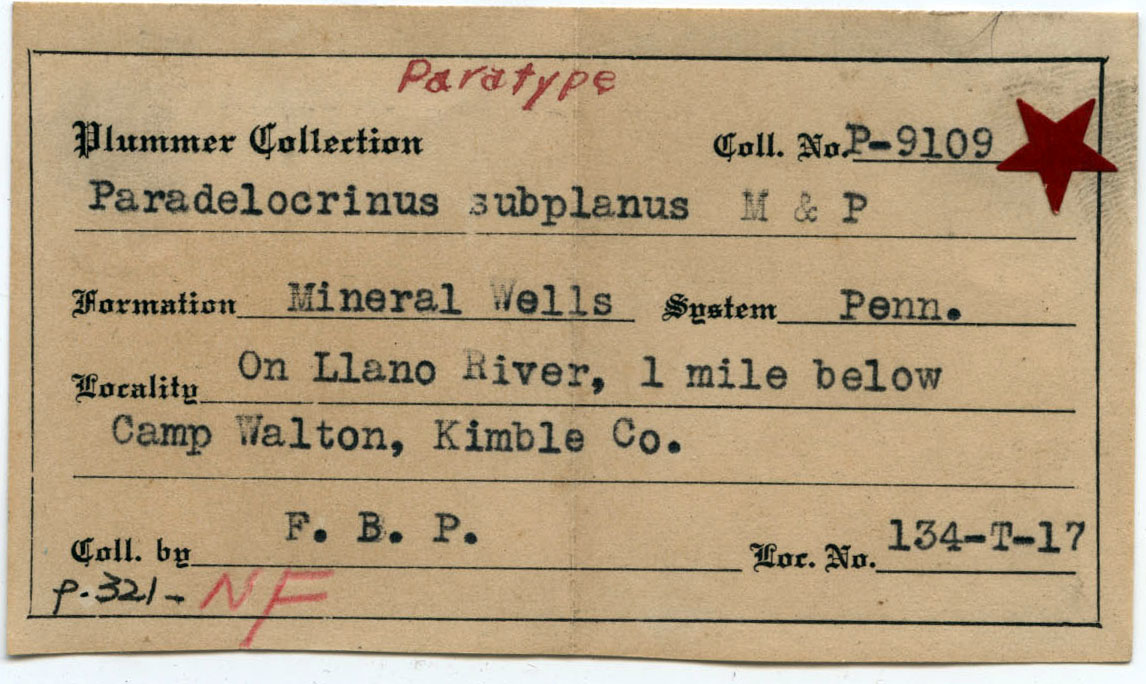 Paratype
Plummer Collection Coll. No. P-9109
Paradelocrinus subplanus M & P
Formation Mineral Wells System Penn.
Locality On Llano River, 1 mile below
Camp Walton, Kimble Co.
Coll. by F. B. P. Loc. No. 134-T-17
p. 321- NF